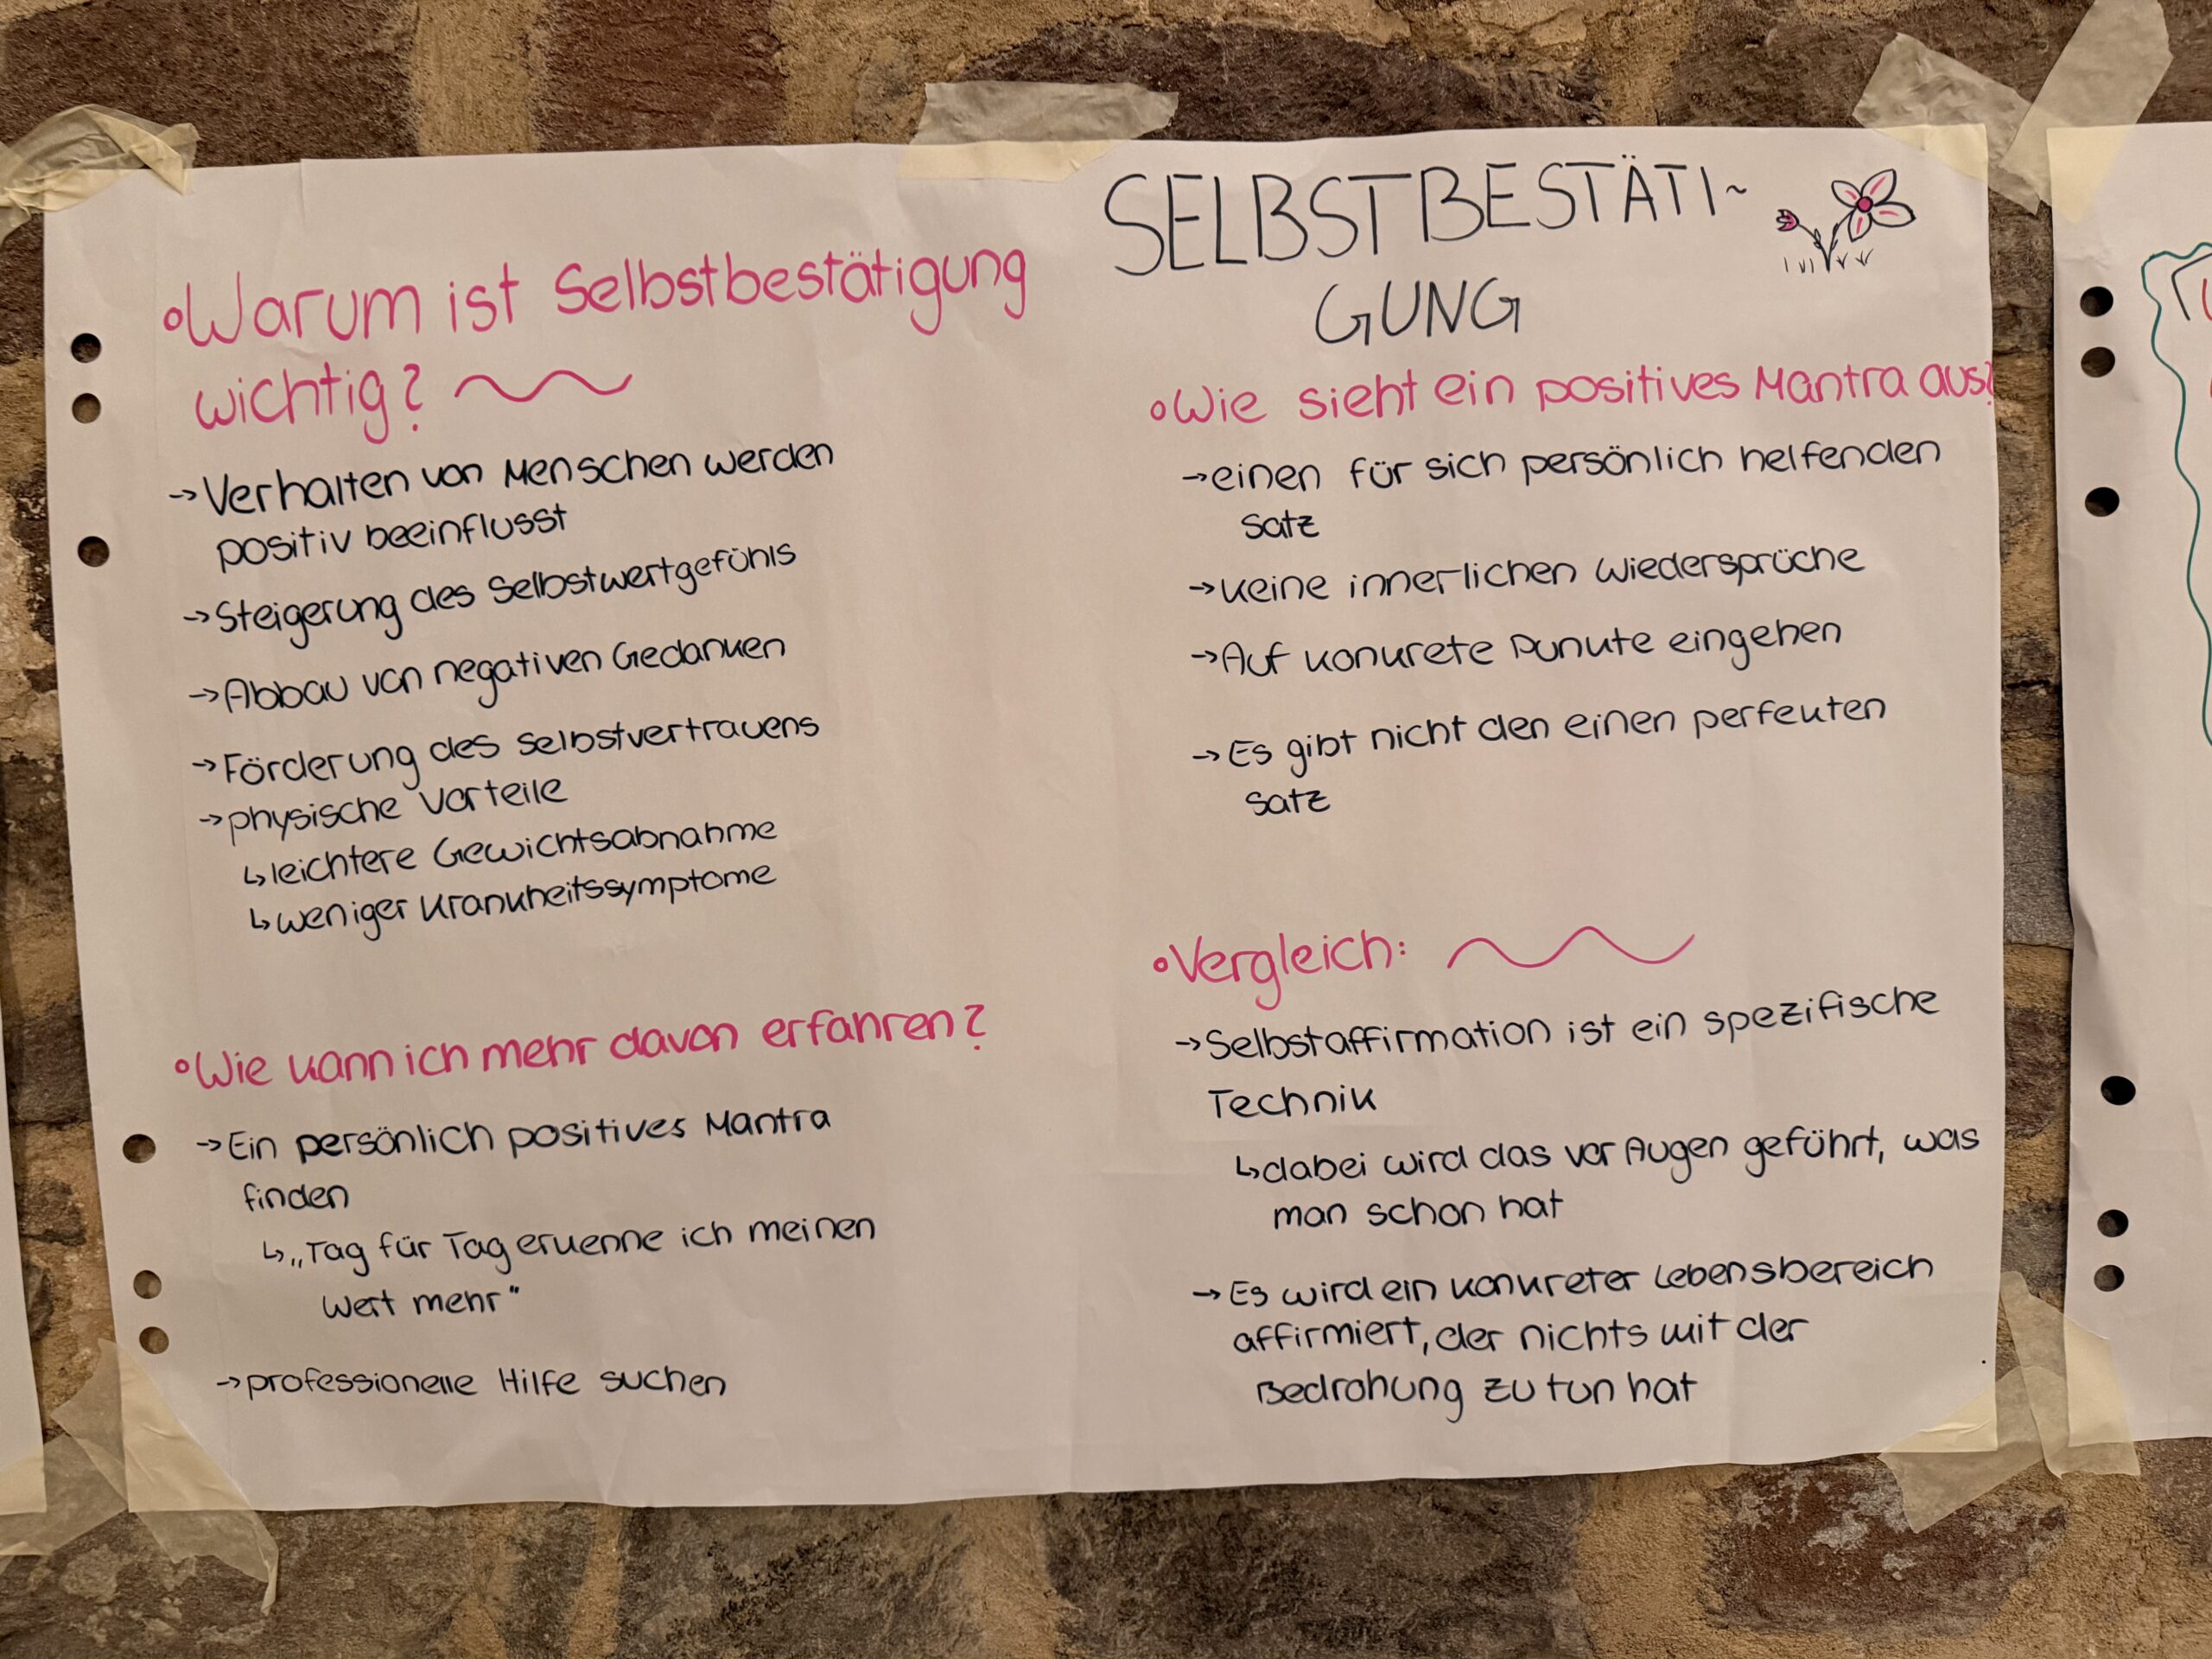 SELBSTBESTÄTI~
GUNG
•Warum ist Selbstbestätigung
wichtig?
→Verhalten von Menschen werden
positiv beeinflusst
→Steigerung des Selbstwertgefühls
→Abbau von negativen Gedanken
→Förderung des Selbstvertrauens
→physische Vorteile
↳leichtere Gewichtsabnahme
↳weniger Krankheitssymptome
•Wie kann ich mehr davon erfahren?
→Ein persönlich positives Mantra
finden
↳„Tag für Tag erkenne ich meinen
Wert mehr"
→professionelle Hilfe suchen
•Wie sieht ein positives Mantra aus?
→einen für sich persönlich helfenden
Satz
→keine innerlichen Wiedersprüche
→Auf konkrete Punkte eingehen
→Es gibt nicht den einen perfekten
Satz
•Vergleich:
→Selbstaffirmation ist ein spezifische
Technik
↳dabei wird das vor Augen geführt, was
man schon hat
→Es wird ein konkreter Lebensbereich
affirmiert, der nichts mit der
Bedrohung zu tun hat